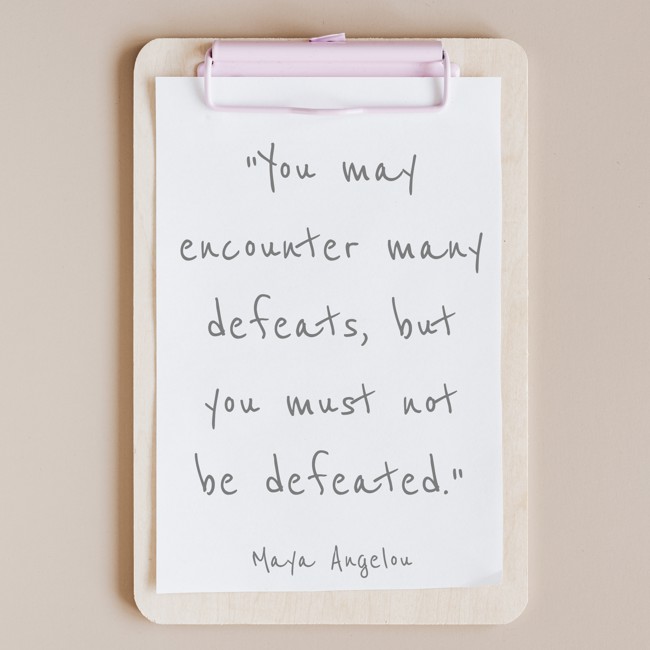 "You may
encounter many
defeats, but
you must not
be defeated."
Maya Angelou